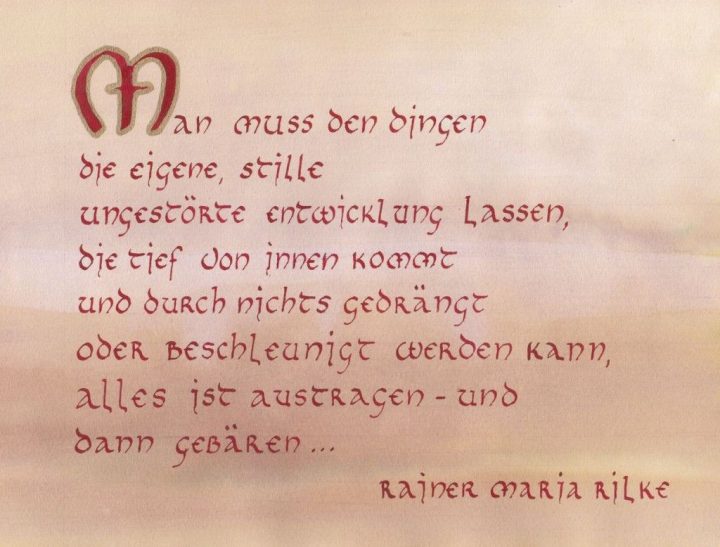 Man muss den Dingen
die eigene, stille
ungestörte Entwicklung lassen,
die tief von innen kommt
und durch nichts gedrängt
oder beschleunigt werden kann,
alles ist austragen - und
dann gebären...
Rainer Maria Rilke